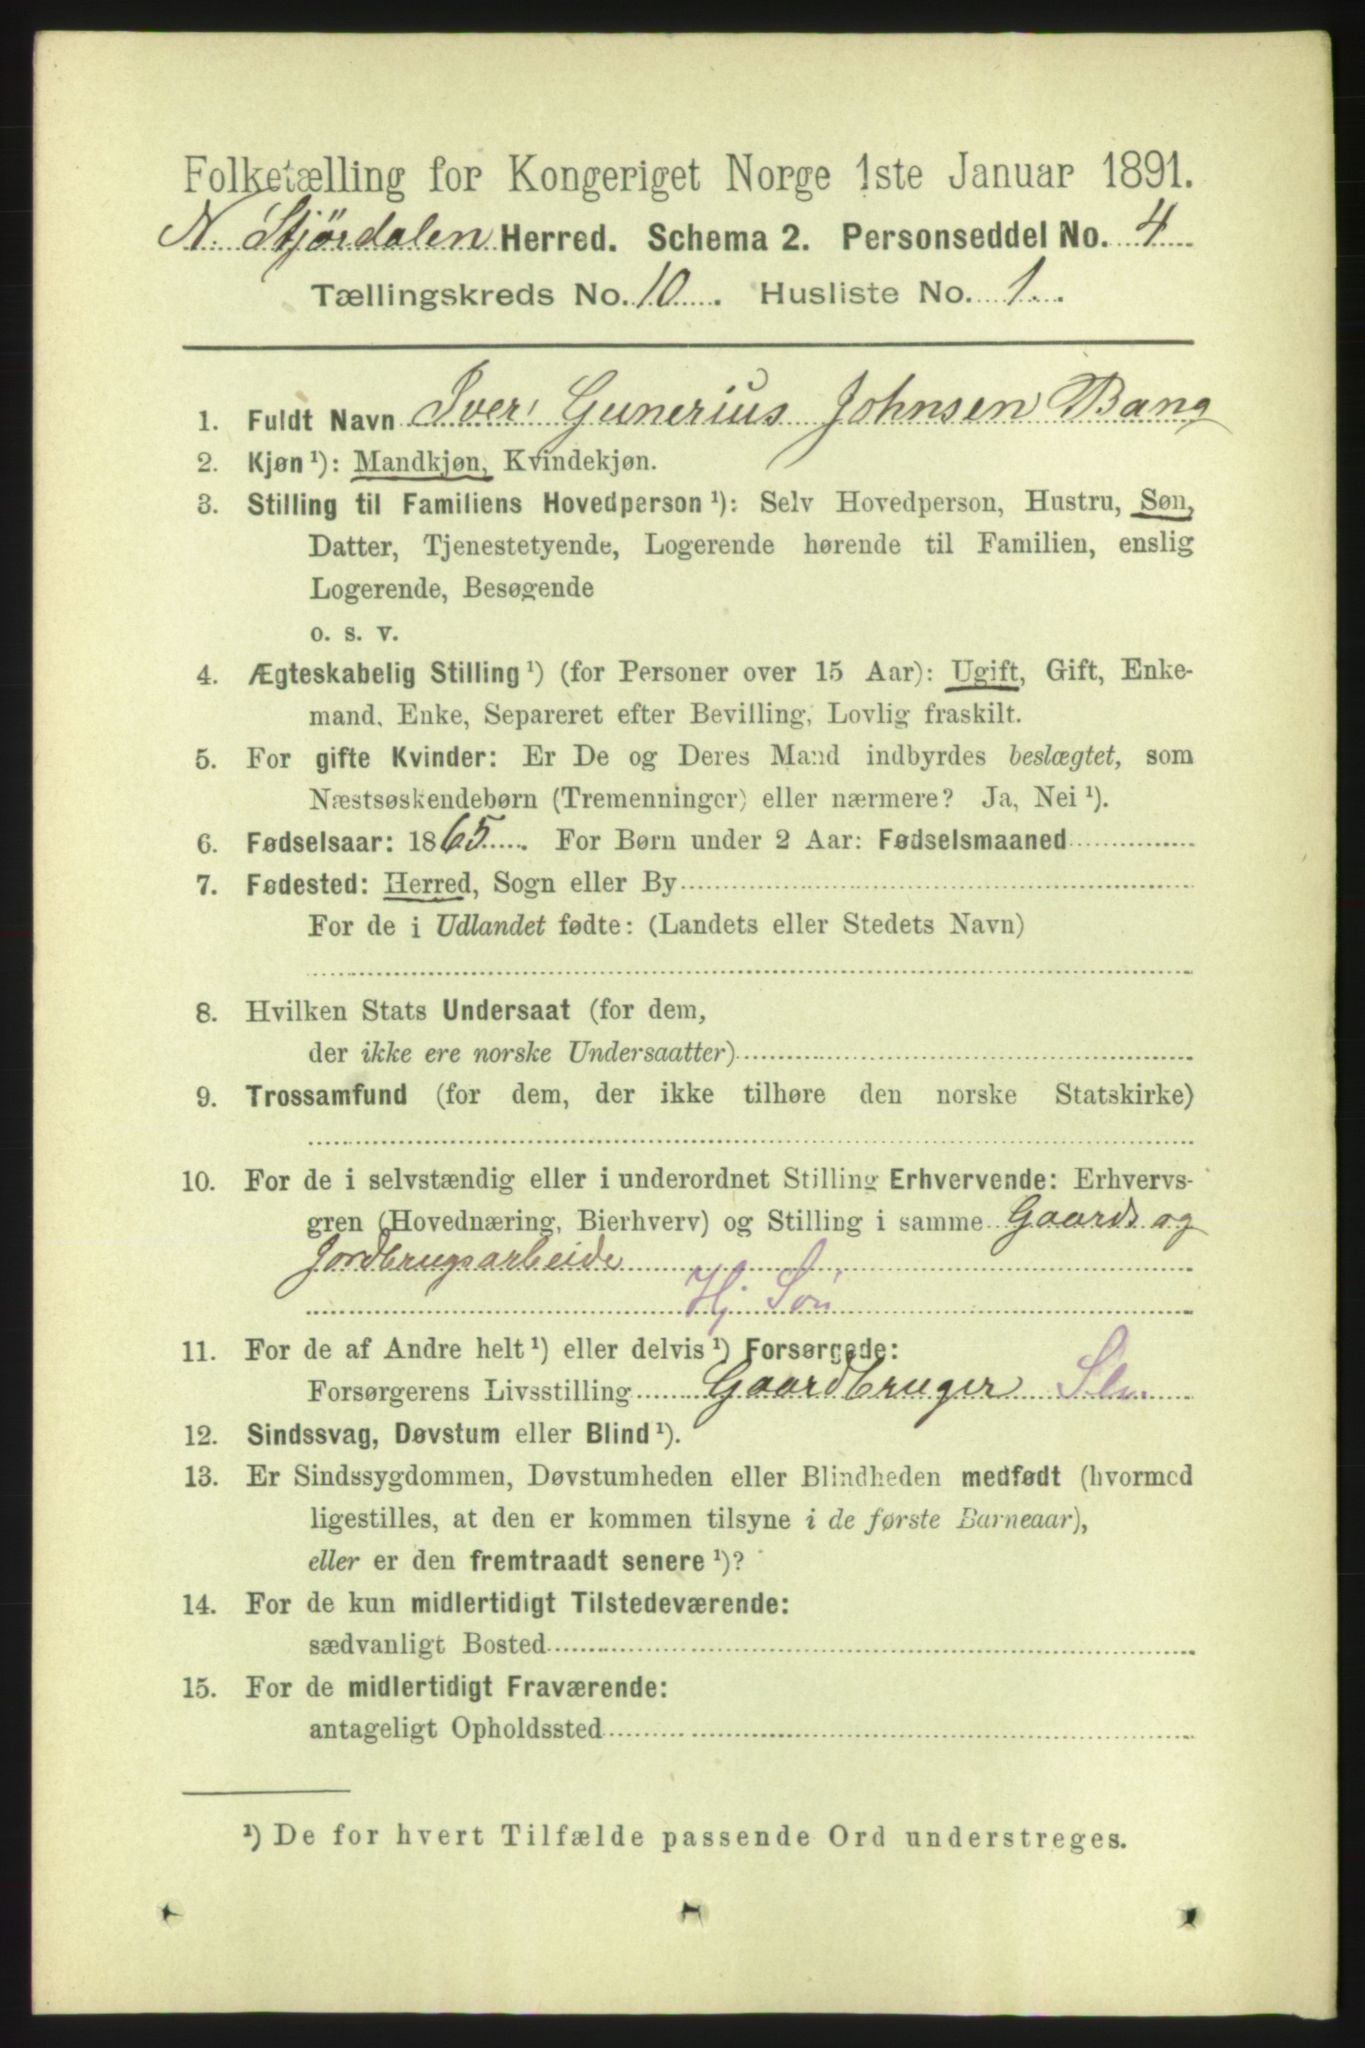 Folketælling for Kongeriget Norge 1ste Januar 1891.
N. Stjørdalen Herred. Schema 2. Personseddel No. 4
Tællingskreds No. 10. Husliste No. 1.
1. Fuldt Navn Iver Gunerius Johnsen Bang
2. Kjøn ¹): Mandkjøn, Kvindekjøn.
3. Stilling til Familiens Hovedperson ¹): Selv Hovedperson, Hustru, Søn,
Datter, Tjenestetyende, Logerende hørende til Familien, enslig
Logerende, Besøgende
o. s. v.
4. Ægteskabelig Stilling ¹) (for Personer over 15 Aar): Ugift, Gift, Enke-
mand, Enke, Separeret efter Bevilling, Lovlig fraskilt.
5. For gifte Kvinder: Er De og Deres Mand indbyrdes beslægtet, som
Næstsøskendebørn (Tremenninger) eller nærmere? Ja, Nei ¹).
6. Fødselsaar: 1865. For Børn under 2 Aar: Fødselsmaaned
7. Fødested: Herred, Sogn eller By
For de i Udlandet fødte: (Landets eller Stedets Navn)
8. Hvilken Stats Undersaat (for dem,
der ikke ere norske Undersaatter)
9. Trossamfund (for dem, der ikke tilhøre den norske Statskirke)
10. For de i selvstændig eller i underordnet Stilling Erhvervende: Erhvervs-
gren (Hovednæring, Bierhverv) og Stilling i samme Gaards og
Jordbrugsarbeide
Hj Søn
11. For de af Andre helt ¹) eller delvis ¹) Forsørgede:
Forsørgerens Livsstilling Gaardbruger
12. Sindssvag, Døvstum eller Blind ¹).
13. Er Sindssygdommen, Døvstumheden eller Blindheden medfødt (hvormed
ligestilles, at den er kommen tilsyne i de første Barneaar),
eller er den fremtraadt senere ¹)?
14. For de kun midlertidigt Tilstedeværende:
sædvanligt Bosted
15. For de midlertidigt Fraværende:
antageligt Opholdssted
¹) De for hvert Tilfælde passende Ord understreges.